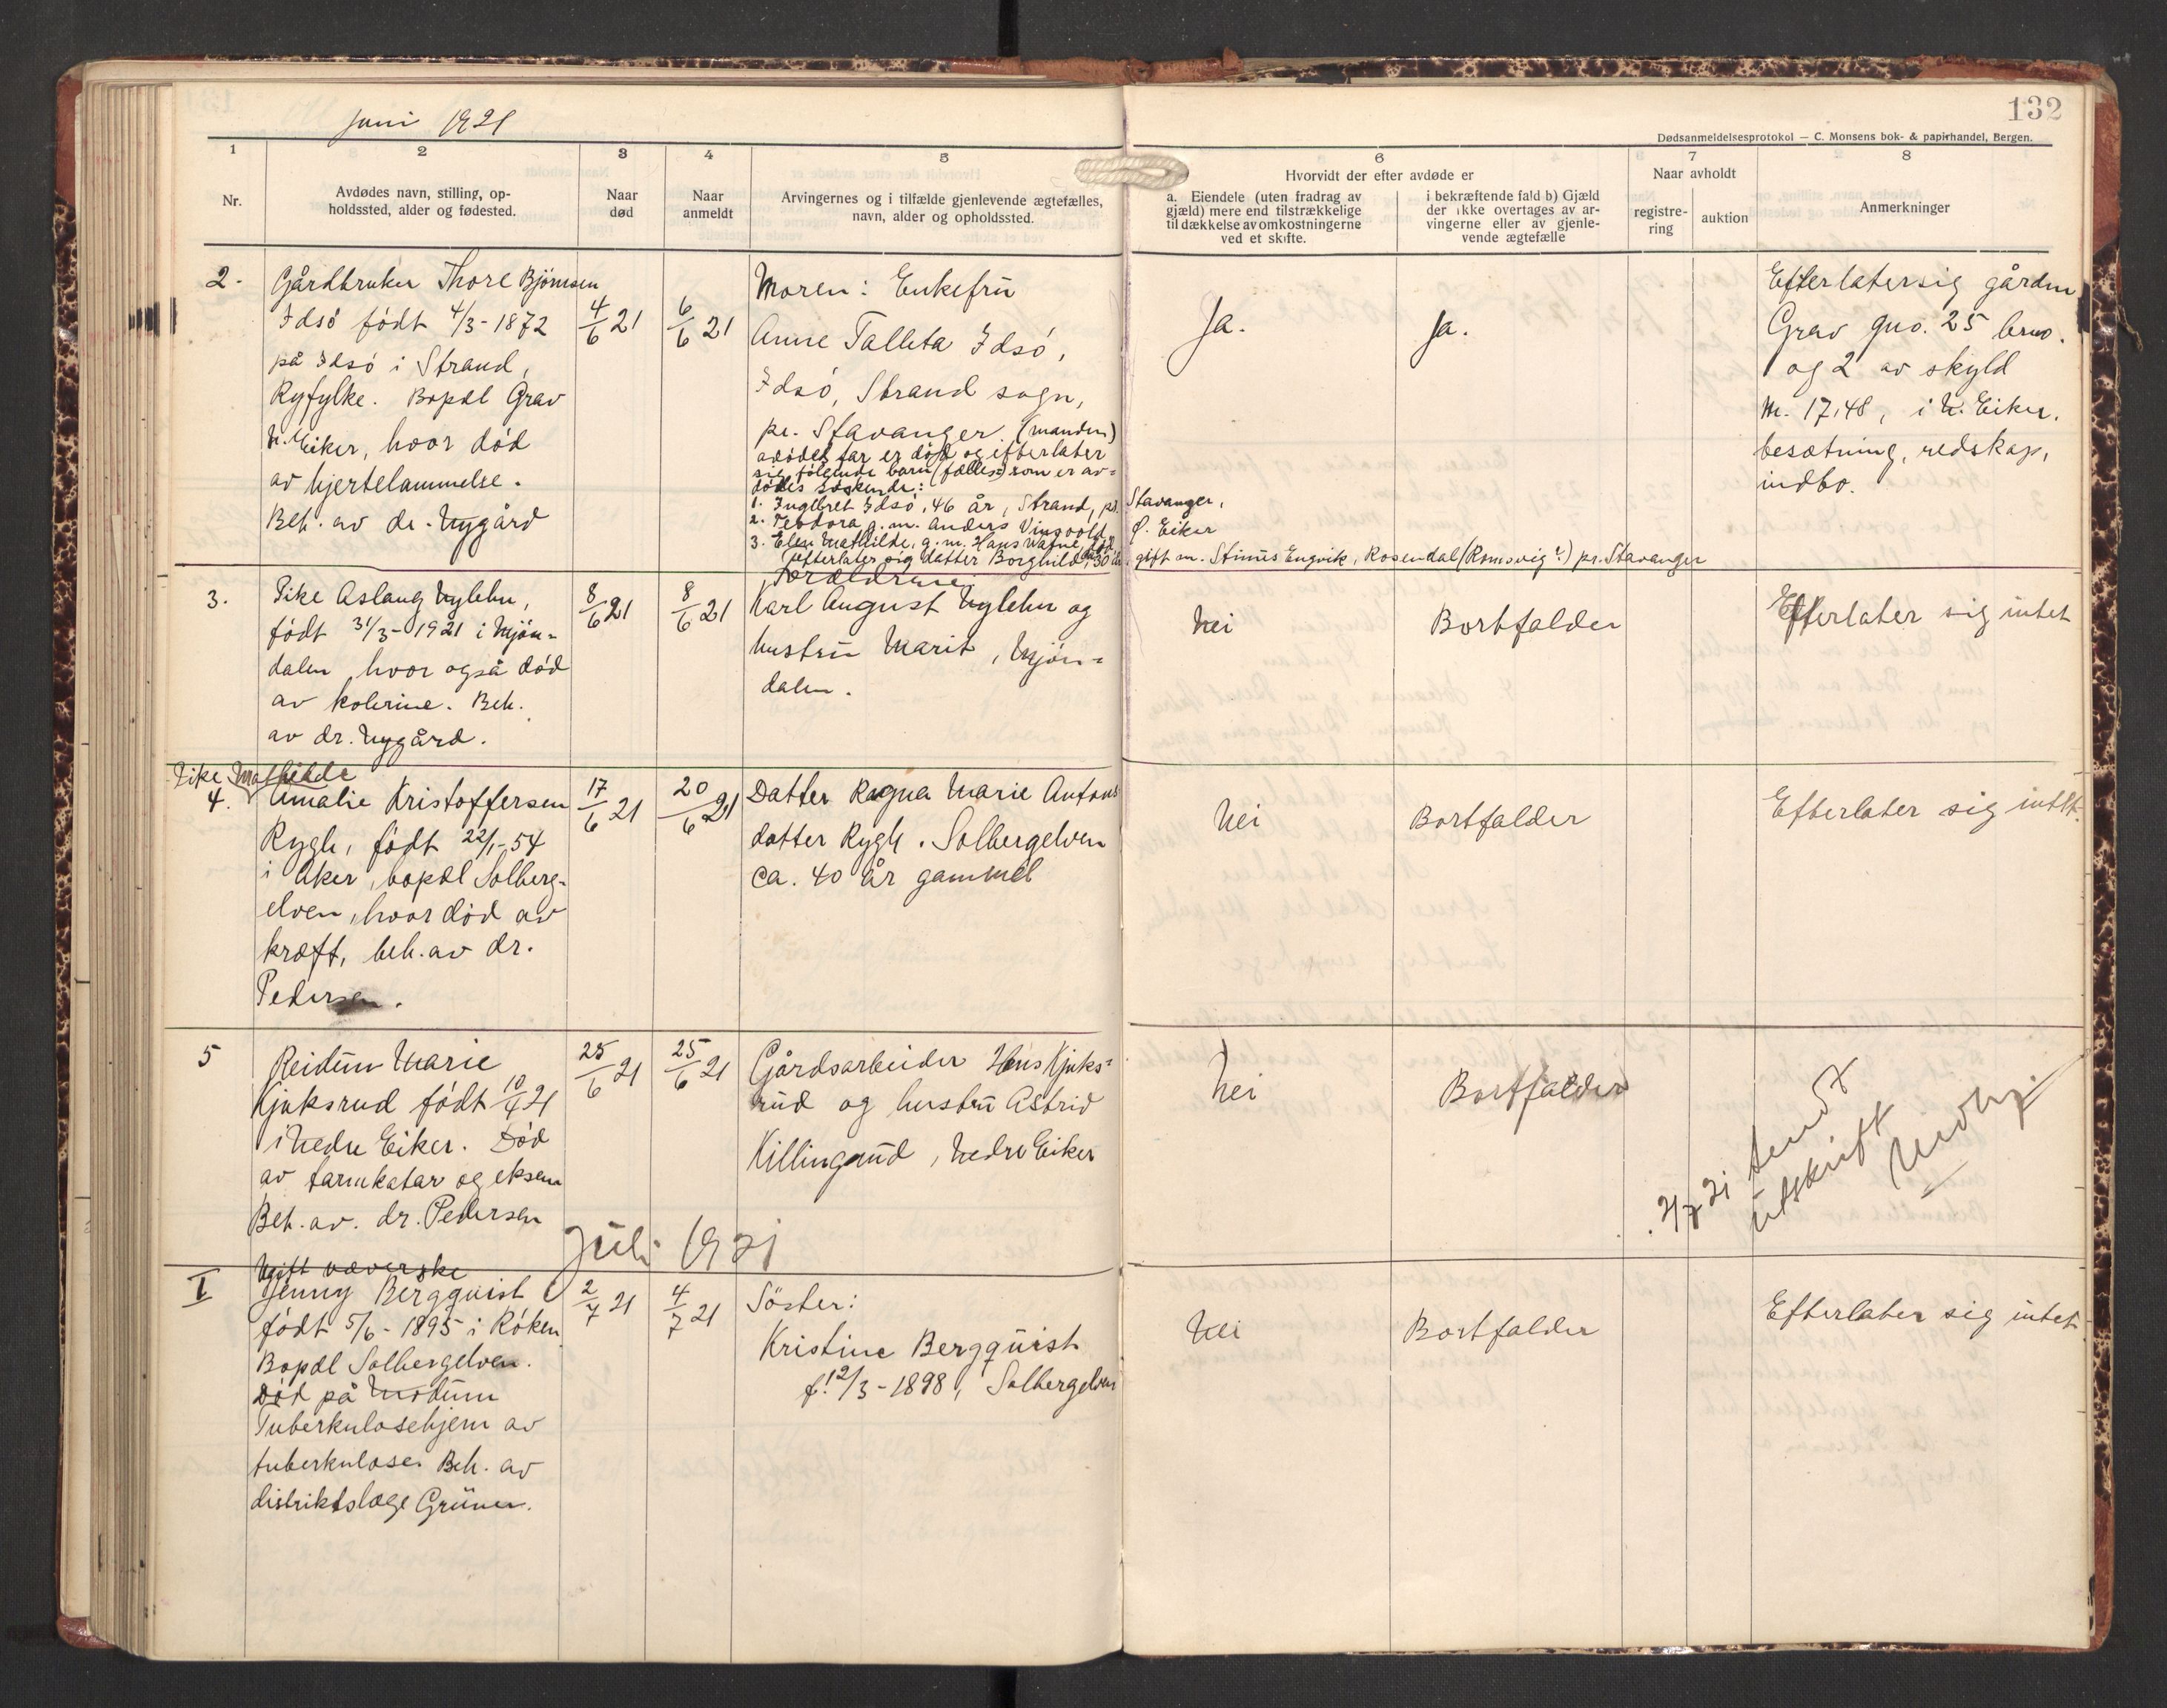 132
juni 1921
Dødsanmeldelsesprotokol — C. Monsens bok- & papirhandel, Bergen.
1
2
3
4
5
6
7
8
Nr.
Avdødes navn, stilling, op-
holdssted, alder og fødested.
Naar
død
Naar
anmeldt
Arvingernes og i tilfælde gjenlevende ægtefælles,
navn, alder og opholdssted.
Hvorvidt der efter avdøde er
a. Eiendele (uten fradrag av
gjæld) mere end tilstrækkelige
til dækkelse av omkostningerne
ved et skifte.
i bekræftende fald b) Gjæld
der ikke overtages av ar-
vingerne eller av gjenle-
vende ægtefælle
Naar avholdt
registre-
ring
auktion
Anmerkninger
2.
Gårdbruker Thore Bjørnsen
Idsö födt 4/3-1872
på Idsö i Strand,
Ryfylke. Bopæl Grav
N. Eiker, hvor död
av hjertelammelse.
Beh. av dr. Nygård
4/6 21
6/6 21
Moren: Enkefru
Anne Talleta Idsö,
Idsö, Strand sogn,
pr. Stavanger. (manden)
avdödes far er död og efterlater
sig følgende barn (fælles) som er av-
dödes söskende:
1. Ingebret Idsö, 46 år, Strand, pr. Stavanger,
2. Teodora g.m. Anders Vinsvold, Ö. Eiker
3. Elen Mathilde, g.m. Hans Watne, död
(efterlater sig datter Borghild, 30 år, gift m. Stinus Engvik, Rosendal (Romsvig?) pr. Stavanger
Ja.
Ja.
Efterlater sig gården
Grav gno. 25 brno.
1 og 2 av skyld
m. 17,48, i N. Eiker.
besætning, redskap,
indbo.
3.
Pike Aslaug Nylehn,
födt 31/3-1921 i Mjön-
dalen hvor også död
av kolerine. Beh.
av dr. Nygård.
8/6 21
8/6 21
Forældrene
Karl August Nylehn og
hustru Marit, Mjön=
dalen.
Nei
Bortfalder
Efterlater sig intet
4.
Pike Mathilde
Amalie Kristoffersen
Rygh, födt 22/1-54
i Aker, bopæl Solberg-
elven, hvor död av
kræft, beh. av dr.
Pedersen.
17/6 21
20/6 21
Datter Ragna Marie Antons
datter Rygh. Solbergelven
ca. 40 år gammel
Nei
Bortfalder
Efterlater sig intet.
5
Reidun Marie
Kjuksrud födt 10/4 21
i Nedre Eiker. Död
av tarmkatar og eksem
Beh. av. dr. Pedersen
25/6 21
25/6 21
Gårdsarbeider Hans Kjuks=
rud og hustru Astrid
Killingrud, Nedre Eiker
Nei
Bortfalder
2/7 21 sendt
utskrift
Juli 1921
I
Ugift væverske
Jenny Bergquist
födt 5/6-1895 i Röken
Bopæl Solbergelven.
Död på Modum
Tuberkulosehjem av
tuberkulose. Beh. av
distriktslæge Grüner.
2/7 21
4/7 21
Söster:
Kristine Bergquist
f. 12/3-1898, Solbergelven
Nei
Bortfalder
Efterlater sig intet